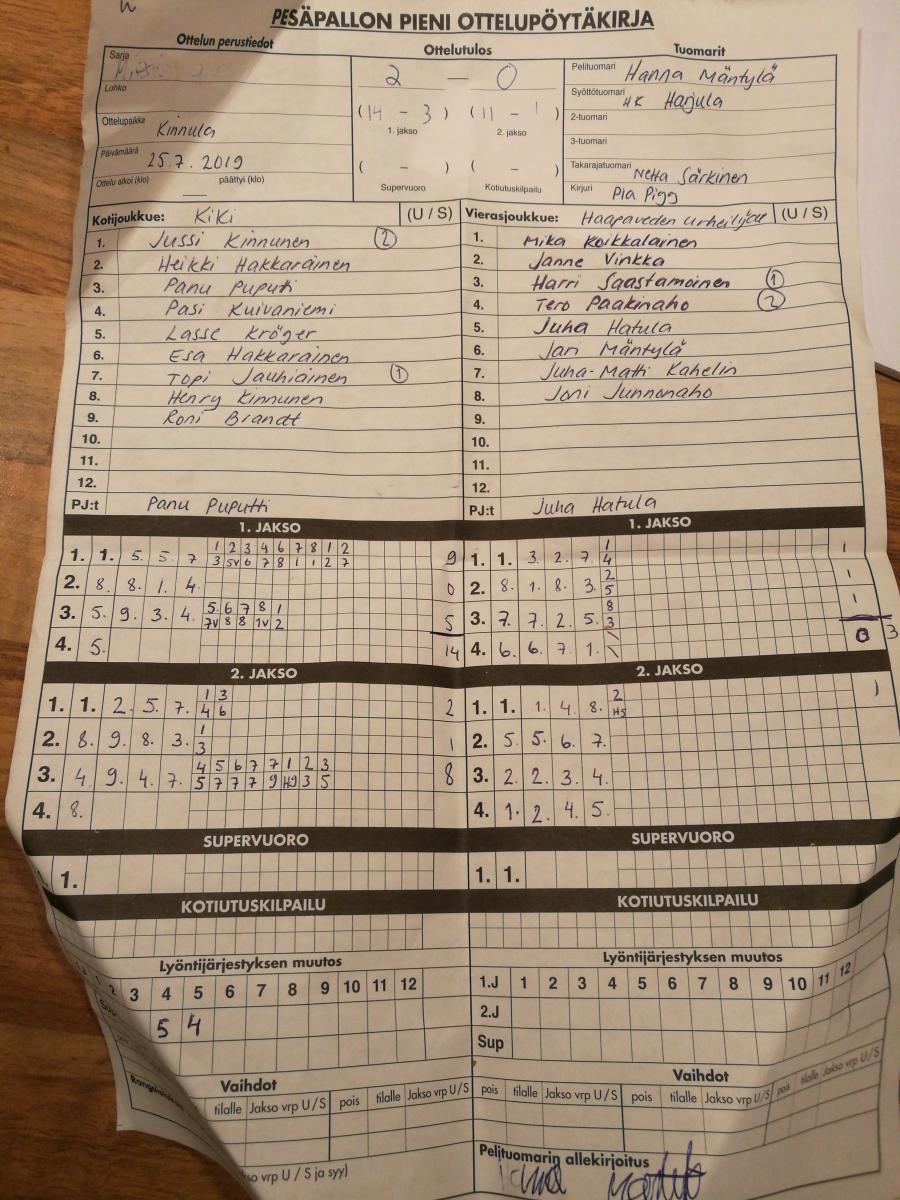 PESÄPALLON PIENI OTTELUPÖYTÄKIRJA
Ottelun perustiedot
Sarja
Lohko
Ottelupaikka Kinnula
Päivämäärä 25.7.2019
Ottelu alkoi (klo) — päättyi (klo)
Ottelutulos
2 — 0
(14 - 3) (11 - 1)
1. jakso 2. jakso
( - ) ( - )
Supervuoro Kotiutuskilpailu
Tuomarit
Pelituomari Hanna Mäntylä
Syöttötuomari HK Harjula
2-tuomari
3-tuomari
Takarajatuomari Netta Särkinen
Kirjuri Pia Pigg
Kotijoukkue: KiKi (U / S)
1. Jussi Kinnunen ②
2. Heikki Hakkarainen
3. Panu Puputti
4. Pasi Kuivaniemi
5. Lasse Kröger
6. Esa Hakkarainen
7. Topi Jauhiainen ①
8. Henry Kinnunen
9. Roni Brandt
10.
11.
12.
PJ:t Panu Puputti
Vierasjoukkue: Haapaveden urheilijat (U / S)
1. Mika Koikkalainen
2. Janne Vinkka
3. Harri Saastamoinen ①
4. Tero Paakinaho ②
5. Juha Hatula
6. Jari Mäntylä
7. Juha-Matti Kahelin
8. Joni Junnonaho
9.
10.
11.
12.
PJ:t Juha Hatula
1. JAKSO
1. 1. 5. 5. 7 1 2 3 4 6 7 8 1 2 9
3 5v 6 7 8 1 1 2 7
2. 8. 8. 1. 4. 0
3. 5. 9. 3. 4. 5. 6 7 8 1 5
7v 8 8 1v 2
4. 5. 14
1. JAKSO
1. 1. 3. 2. 7. 1 1
4
2. 8. 1. 8. 3. 2 1
5
3. 7. 7. 2. 5. 8 1
3
4. 6. 6. 7. 1. \ 0 3
2. JAKSO
1. 1. 2. 5. 7. 1 3 2
4 6
2. 8. 9. 8. 3. 1 1
3
3. 4. 9. 4. 7. 4 5 6 7 7 1 2 3 8
5 7 7 7 9 H9 3 5
4. 8.
2. JAKSO
1. 1. 1. 4. 8. 2 1
H5
2. 5. 5. 6. 7.
3. 2. 2. 3. 4.
4. 1. 2. 4. 5.
SUPERVUORO
1.
SUPERVUORO
1. 1.
KOTIUTUSKILPAILU
KOTIUTUSKILPAILU
Lyöntijärjestyksen muutos
2 3 4 5 6 7 8 9 10 11 12
5 4
Lyöntijärjestyksen muutos
1.J 1 2 3 4 5 6 7 8 9 10 11 12
2.J
Sup
Vaihdot
tilalle Jakso vrp U / S pois tilalle Jakso vrp U / S
Vaihdot
pois tilalle Jakso vrp U / S pois tilalle Jakso vrp U / S pois tilalle Jakso vrp U / S
vrp U / S ja syy)
Pelituomarin allekirjoitus